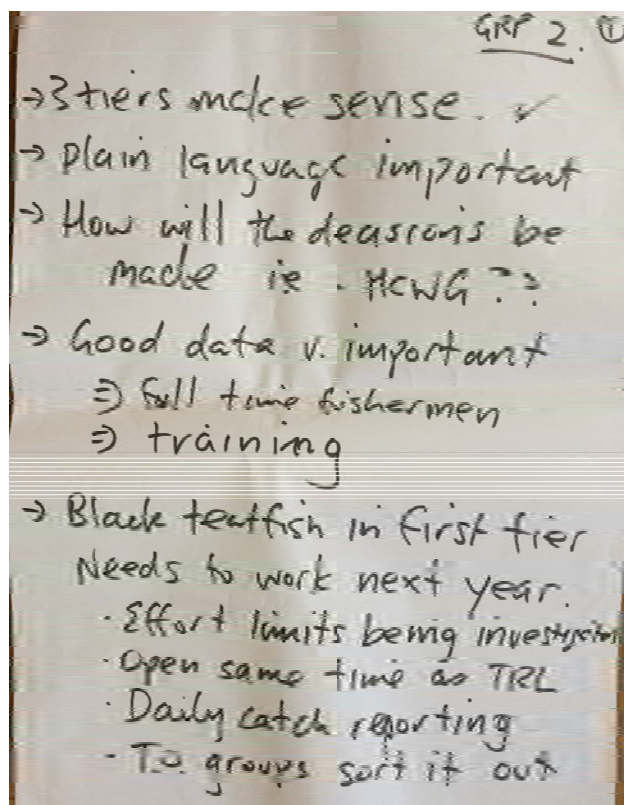 GRP 2. ①
→ 3 tiers make sense. ✓
→ Plain language important
→ How will the decisions be
made ie. HCWG ??
→ Good data v. important
⇒ full time fishermen
⇒ training
→ Black teatfish in first tier
Needs to work next year.
· Effort limits being investigated
· Open same time as TRL
· Daily catch reporting
· T.O. groups sort it out